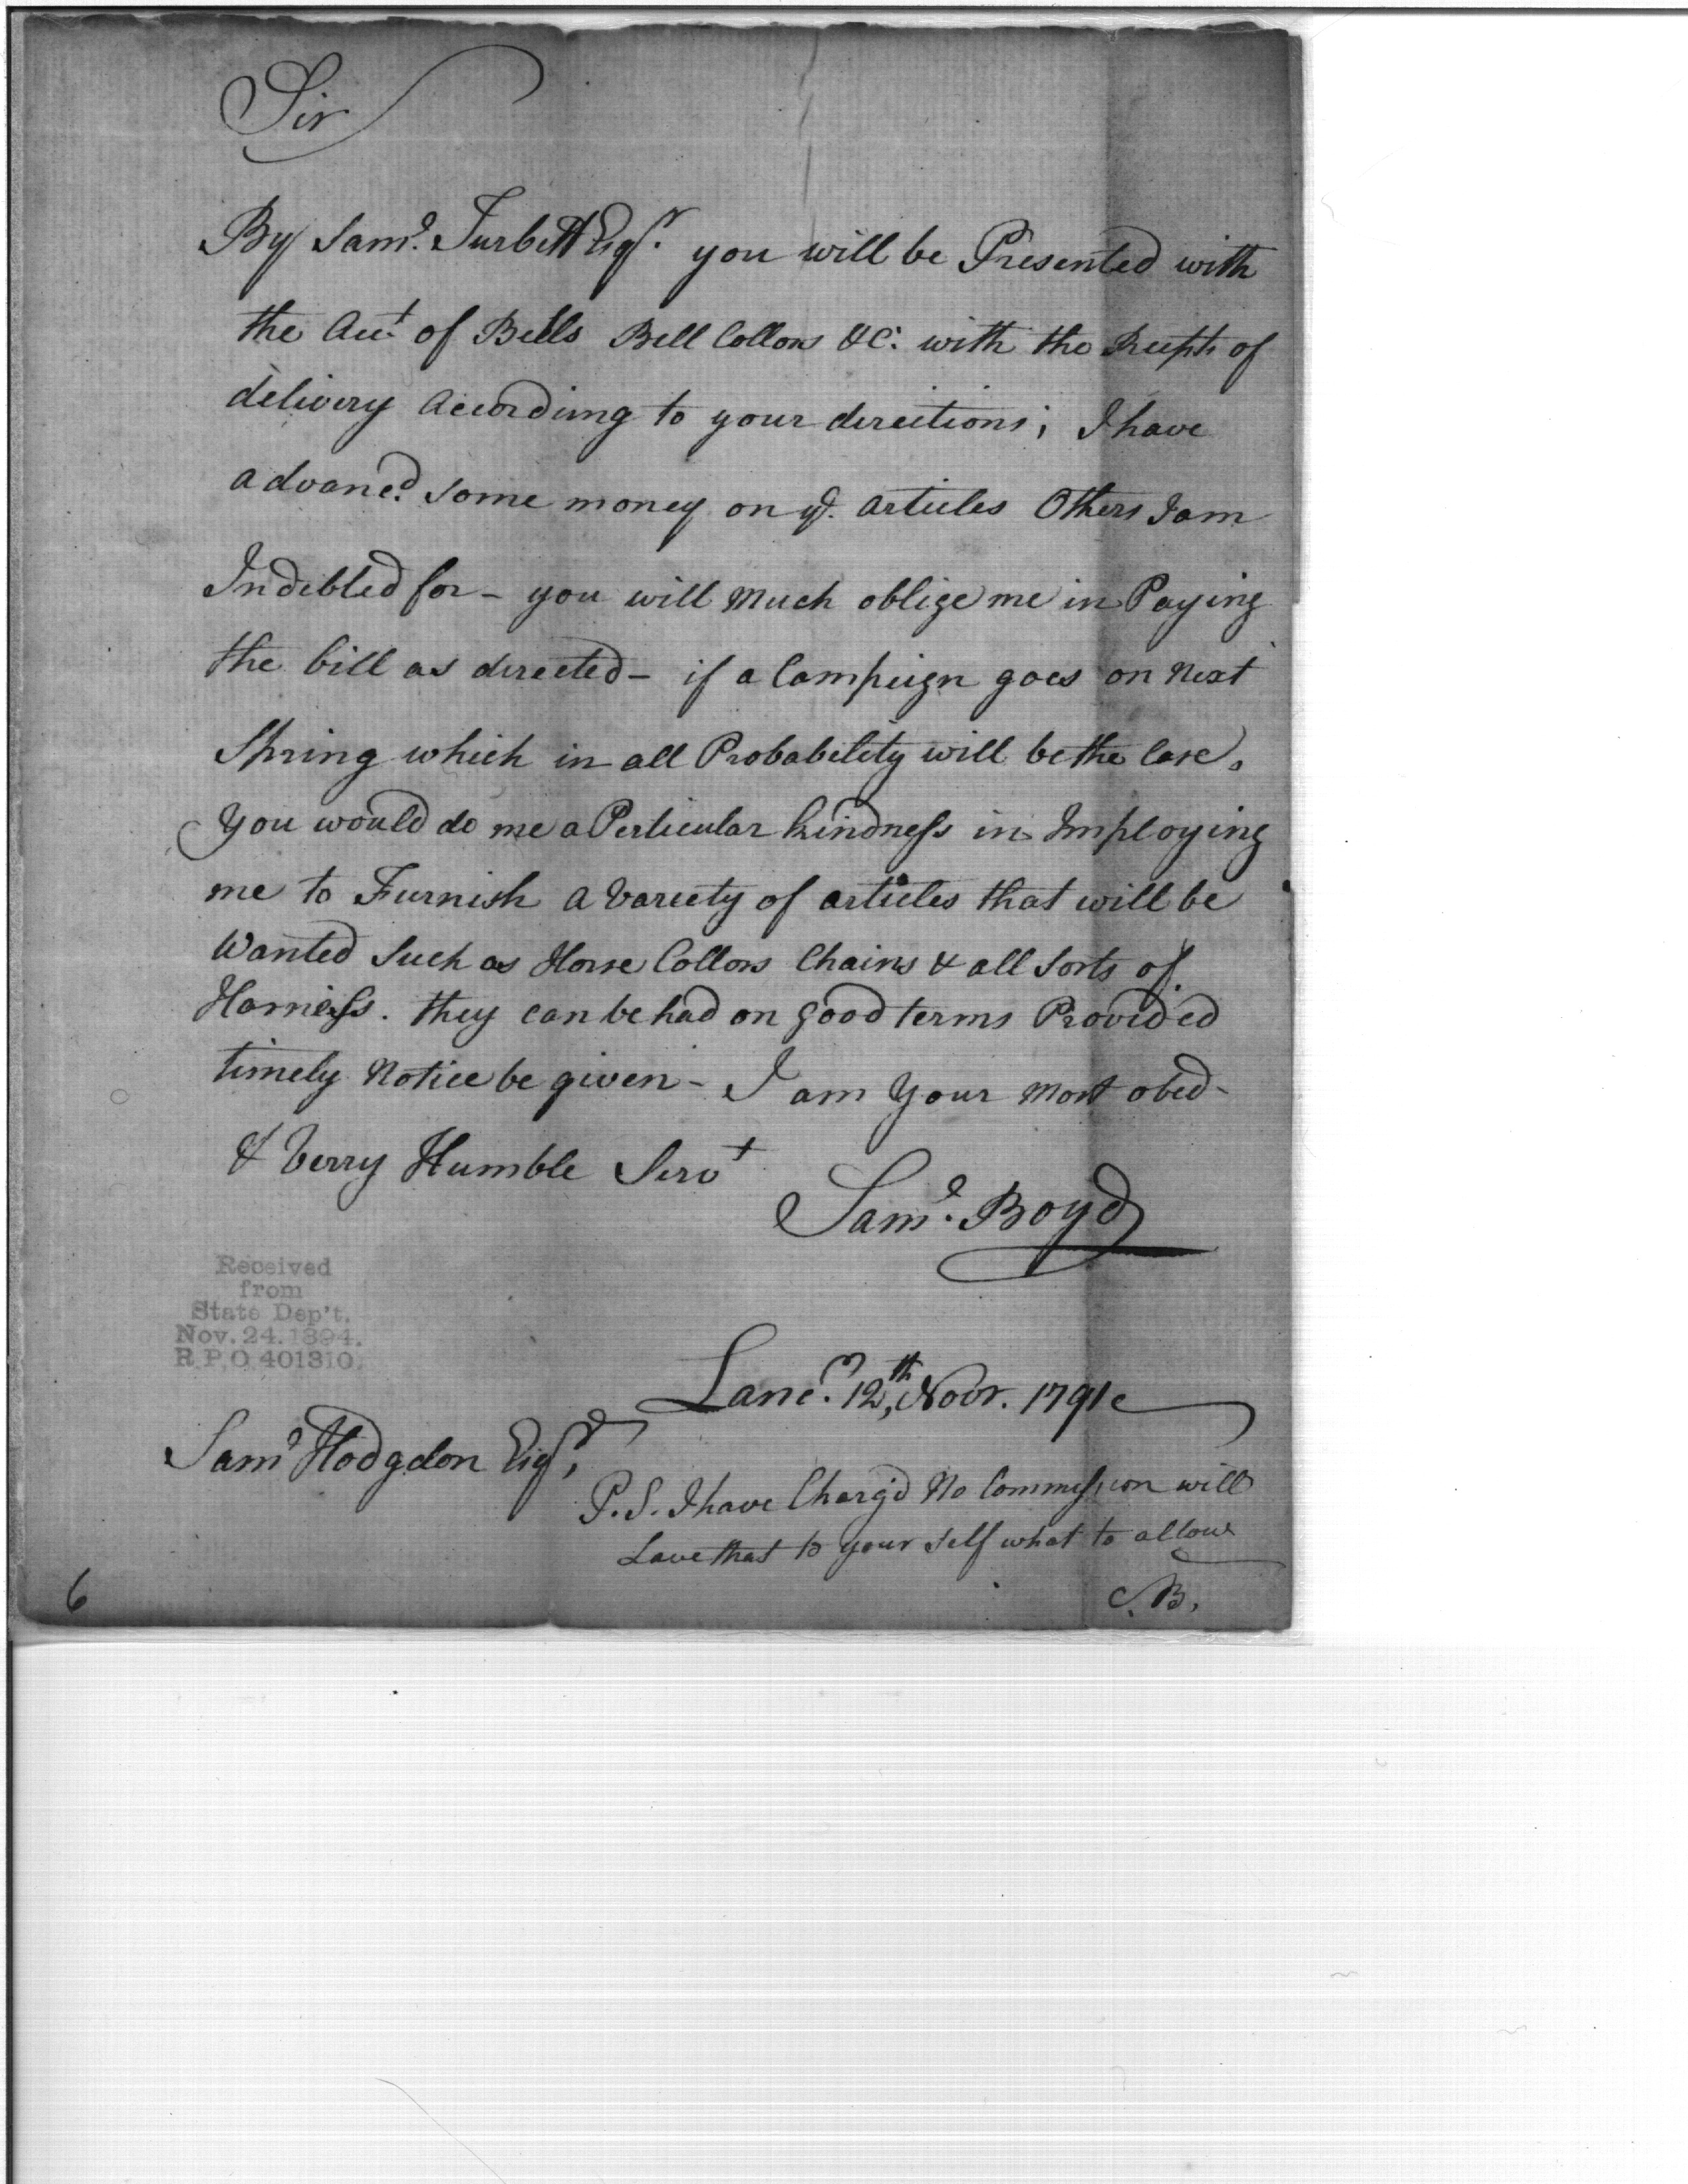 Sir
By Sam.l Turbett Esqr. you will be Presented with
the Acct of Bells Bell Collors &C. with the Recepts of
delivery according to your directions; I have
advanc.d Some money on ye. articles Others I am
Indebted for - you will Much oblige me in Paying
the bill as directed - if a Campeign goes on Next
Spring which in all Probability will be the Case.
You would do me a Perticular kindness in Imploying
me to Furnish a Variety of articles that will be
Wanted Such as Horse Collors Chains & all Sorts of
Harness. they can be had on good terms Provided
timely Notice be given - I am Your Most obed-
& Verry Humble Servt
Sam.l Boyd
Received
from
State Dep't.
Nov. 24. 1894.
R.P.O. 401310.
Lanc.r 12th, Novr. 1791
Saml Hodgdon Esqr,
P.S. I have Charg'd No Commission will
Lave that to your Self what to allow
S.B.
6